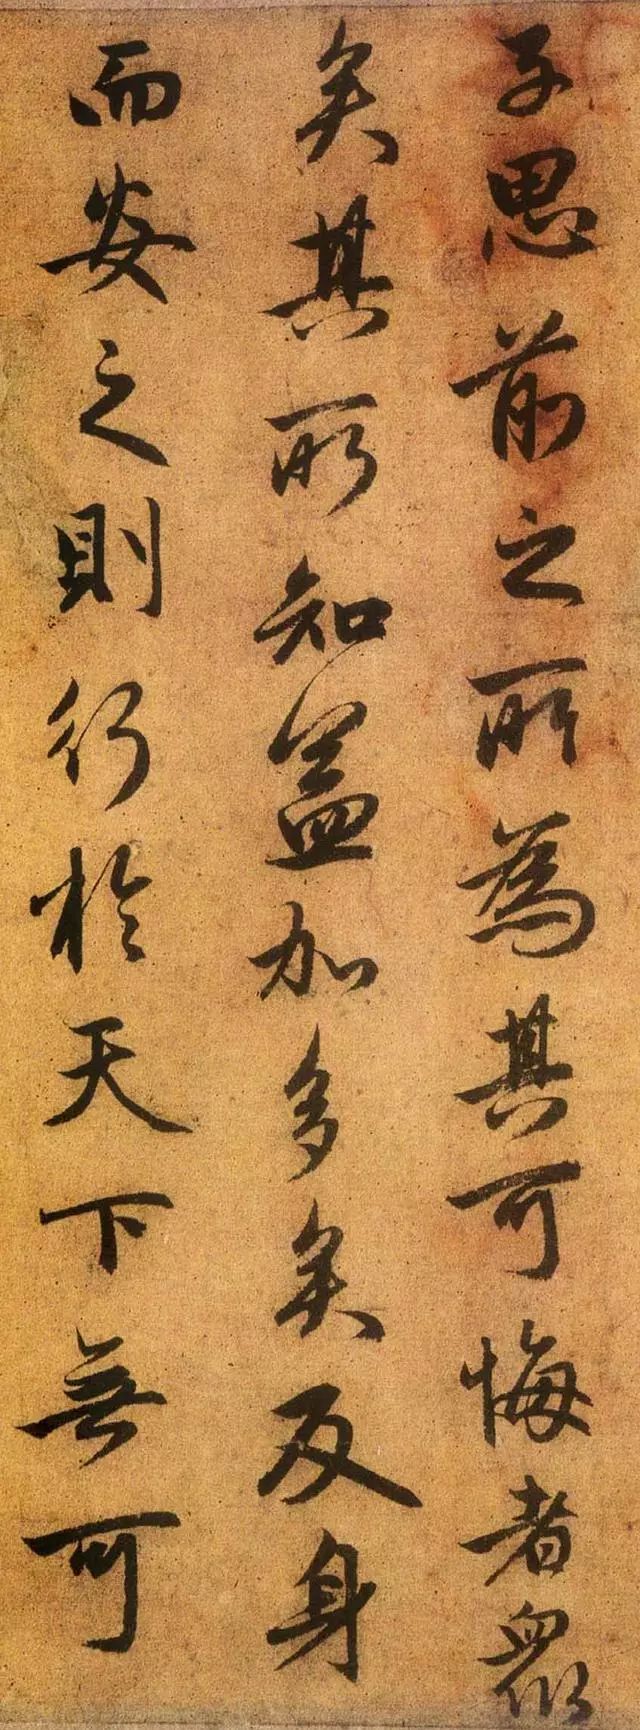 子思前之所為其可悔者衆
矣其所知益加多矣及身
而安之則行於天下無可